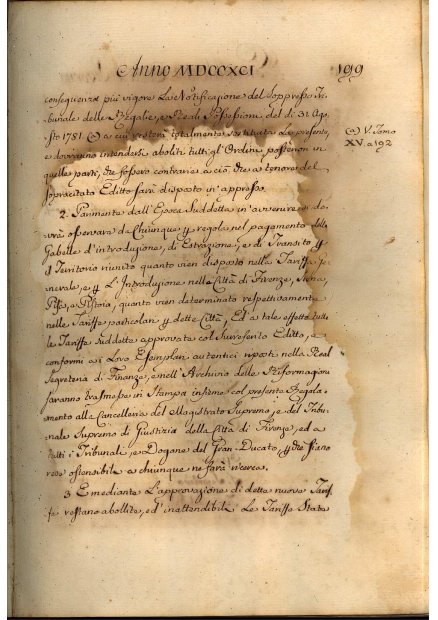 Anno MDCCXCI 199
conseguenza più vigore La Notificazione del Soppresso Tri-
bunale delle Regalie, e Reali Possessioni del dì 31 Ago-
sto 1781 (a) a cui resterà totalmente sostituita La presente,
e dovranno intendersi aboliti tutti gl'Ordini posteriori in
quelle parti, che fossero contrarie a ciò che a tenore del
sopracitato Editto sarà disposto in appresso.
(a) V. Tomo
XV. a 192
2. Parimente dall'Epoca Suddetta in avvenire si do-
vrà osservare da Chiunque p regola nel pagamento delle
Gabelle d'introduzione, di Estrazione, e di Transito p
il Territorio riunito quanto vien disposto nella Tariffa Ge-
nerale, e p L'Introduzione nelle Città di Firenze, Siena,
Pisa, e Pistoia, quanto vien determinato respettivamente
nelle Tariffe particolari p dette Città, Ed a tale effetto tutte
le Tariffe Suddette approvate col Surriferito Editto, e
conformi ai Loro Esemplari autentici riposti nella Real
Segreteria di Finanze, e nell'Archivio delle Riformagioni
saranno trasmesse in Stampa insieme col presente Regola-
mento alla Cancelleria del Magistrato Supremo, e del Tribu-
nale Supremo di Giustizia della Città di Firenze, ed a
tutti i Tribunali, e Dogane del Gran-Ducato, p che siano
rese ostensibili a chiunque ne farà ricerca.
3 E mediante L'approvazione di dette nuove Tarif-
fe restano abolite, ed inattendibili Le Tariffe State